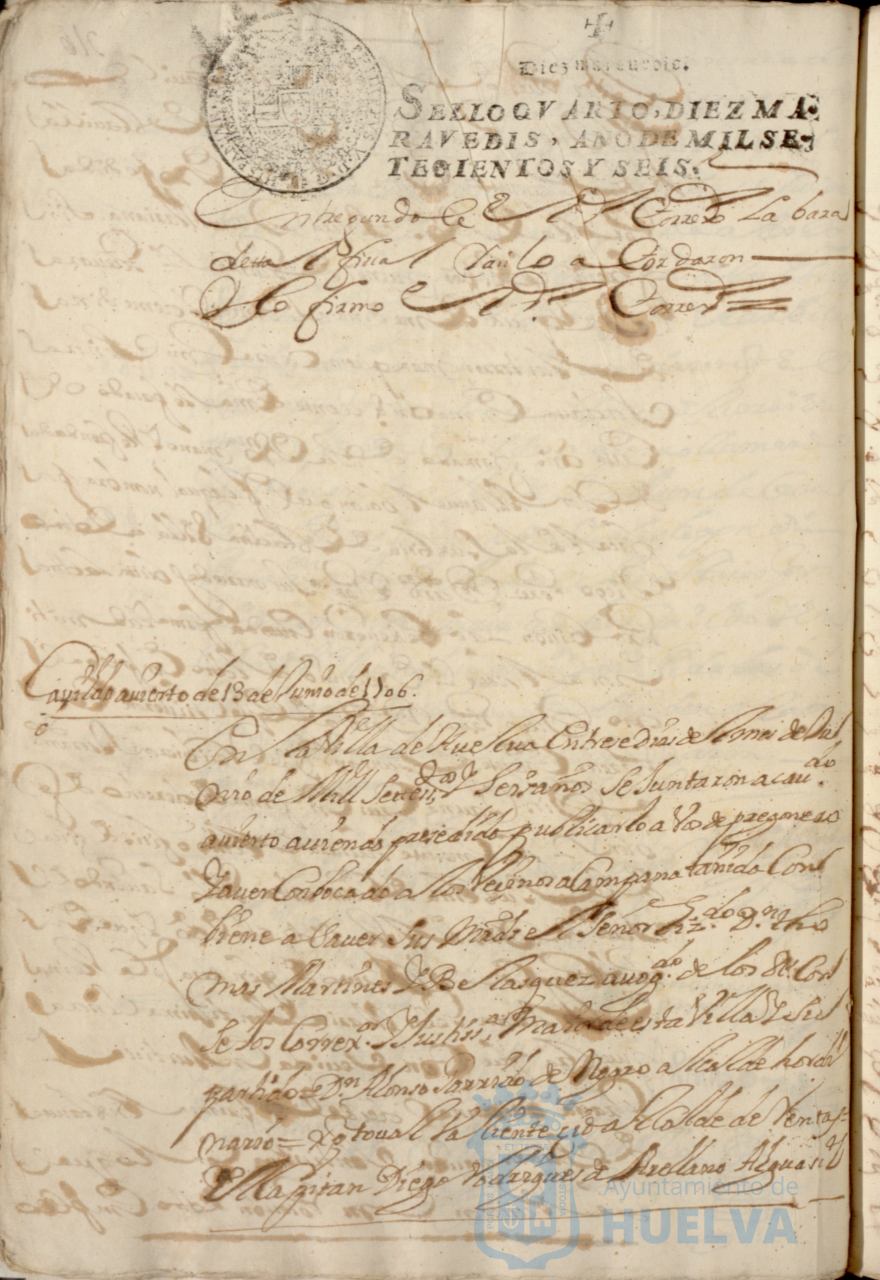 Diez maravedis.
SELLO QVARTO, DIEZ MA-
RAVEDIS, AÑO DE MIL SE-
TECIENTOS Y SEIS.
Entregandole el Sr Corregr la bara
de tal fiscal y asi lo acordaron
Y lo firmo el Sr Corregr
Cavildo avierto de 13 de Junio de 1706.
En la Villa de Huelva En trese dias del mes de Jul
nio de Mill Settesos Y Seis años se Juntaron a cavdo
avierto aviendo presedido publicarlo a Vos de pregonero
Y aver Conbocado a los Vezinos a Campana tañida Conl
biene a Saver sus Mrds el Señor Lizdo Dn tho
mas Martines Y Belasquez avogdo de los Rs Conl
sejos Correxor Y Justisa maior de esta Villa Y sul
partido= Dn Alonso de Negro alcalde hordi
nario= Xptoual Va liente Cid alcalde de
El Capitan Diego Vasques de Arellano Alguasil
Ayuntamiento de
HUELVA